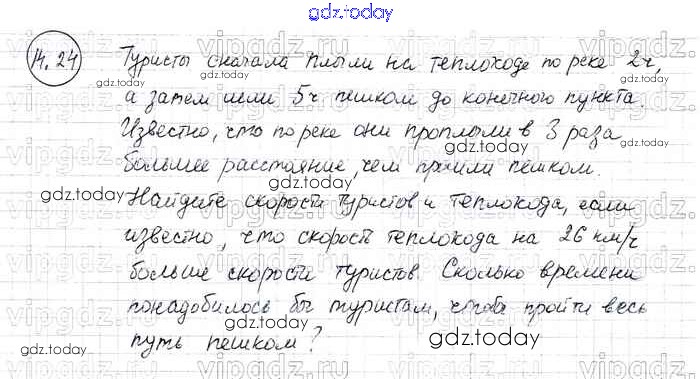 gdz.today
14.24 Туристы сначала плыли на теплоходе по реке 2ч,
gdz.today
а затем шли 5ч пешком до конечного пункта.
Известно, что по реке они проплыли в 3 раза
большее расстояние, чем прошли пешком.
gdz.today gdz.today
Найдите скорости туристов и теплохода, если
известно, что скорость теплохода на 26 км/ч
больше скорости туристов. Сколько времени
понадобилось бы туристам, чтобы пройти весь
gdz.today gdz.today
путь пешком?